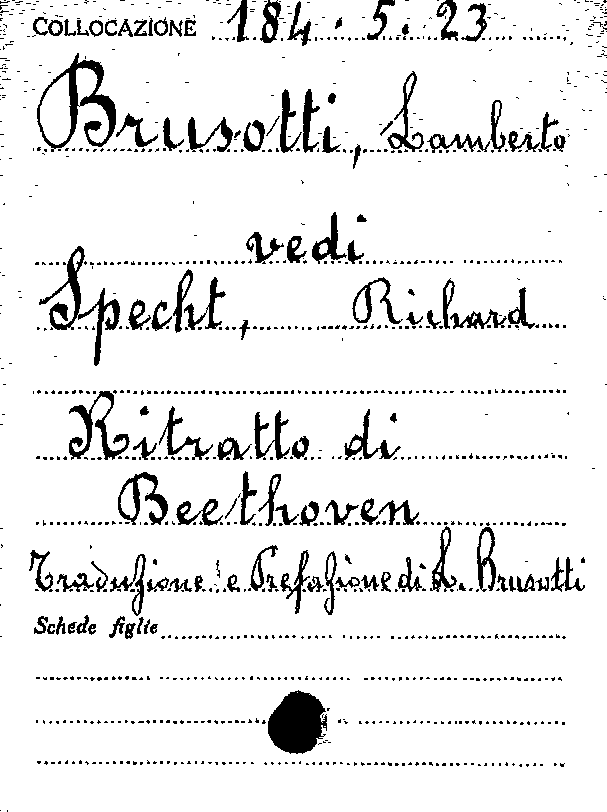 COLLOCAZIONE 184. 5. 23
Brusotti, Lamberto
vedi
Specht, Richard
Ritratto di
Beethoven
Traduzione e Prefazione di L. Brusotti
Schede figlie